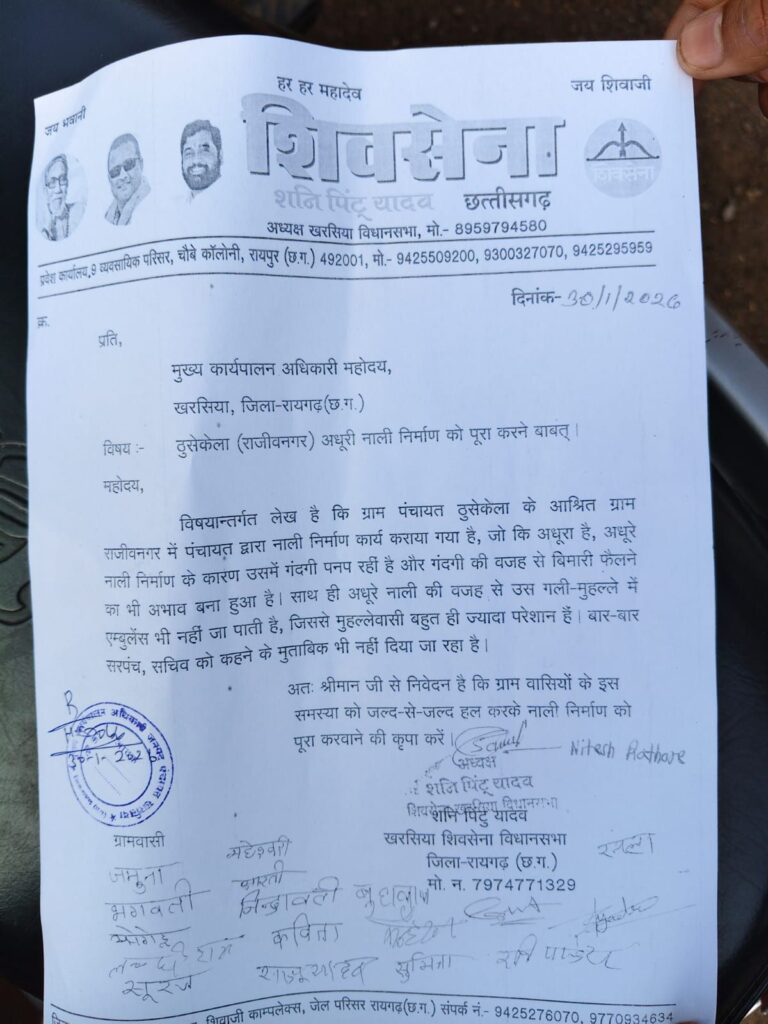 हर हर महादेव
जय भवानी
जय शिवाजी
शिवसेना
शिवसेना
शनि पिंटू यादव छत्तीसगढ़
अध्यक्ष खरसिया विधानसभा, मो.- 8959794580
प्रदेश कार्यालय,9 व्यवसायिक परिसर, चौबे कॉलोनी, रायपुर (छ.ग.) 492001, मो.- 9425509200, 9300327070, 9425295959
क्र.
दिनांक- 30/1/2026
प्रति,
मुख्य कार्यपालन अधिकारी महोदय,
खरसिया, जिला-रायगढ़(छ.ग.)
विषय :- ठुसेकेला (राजीवनगर) अधूरी नाली निर्माण को पूरा करने बाबत्।
महोदय,
विषयान्तर्गत लेख है कि ग्राम पंचायत ठुसेकेला के आश्रित ग्राम
राजीवनगर में पंचायत द्वारा नाली निर्माण कार्य कराया गया है, जो कि अधूरा है, अधूरे
नाली निर्माण के कारण उसमें गंदगी पनप रहीं है और गंदगी की वजह से बिमारी फैलने
का भी अभाव बना हुआ है। साथ ही अधूरे नाली की वजह से उस गली-मुहल्ले में
एम्बुलेंस भी नहीं जा पाती है, जिससे मुहल्लेवासी बहुत ही ज्यादा परेशान हैं। बार-बार
सरपंच, सचिव को कहने के मुताबिक भी नहीं दिया जा रहा है।
अतः श्रीमान जी से निवेदन है कि ग्राम वासियों के इस
समस्या को जल्द-से-जल्द हल करके नाली निर्माण को
पूरा करवाने की कृपा करें।
Nitesh Rathore
अध्यक्ष
शनि पिंटू यादव
शिवसेना खरसिया विधानसभा
शनि पिंटु यादव
खरसिया शिवसेना विधानसभा
जिला-रायगढ़ (छ.ग.)
मो. न. 7974771329
ग्रामवासी
जमुना महेश्वरी
भगवती आरती जिन्द्रावती
कविता
सूरज राजू यादव सुमित्रा
शिवाजी काम्पलेक्स, जेल परिसर रायगढ़(छ.ग.) संपर्क नं.- 9425276070, 9770934634